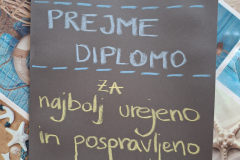 PREJME
DIPLOMO
ZA
najbolj urejeno
in pospravljeno